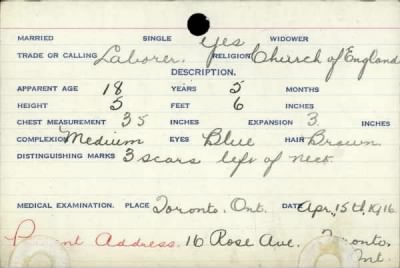 MARRIED SINGLE yes WIDOWER
TRADE OR CALLING Laborer. RELIGION Church of England
DESCRIPTION.
APPARENT AGE 18 YEARS 5 MONTHS
HEIGHT 5 FEET 6 INCHES
CHEST MEASUREMENT 35 INCHES EXPANSION 3 INCHES
COMPLEXION Medium EYES Blue HAIR Brown
DISTINGUISHING MARKS 3 scars left of neck
MEDICAL EXAMINATION. PLACE Toronto. Ont. DATE Apr. 15th, 1916
Present Address. 16 Rose Ave. Toronto,
Ont.